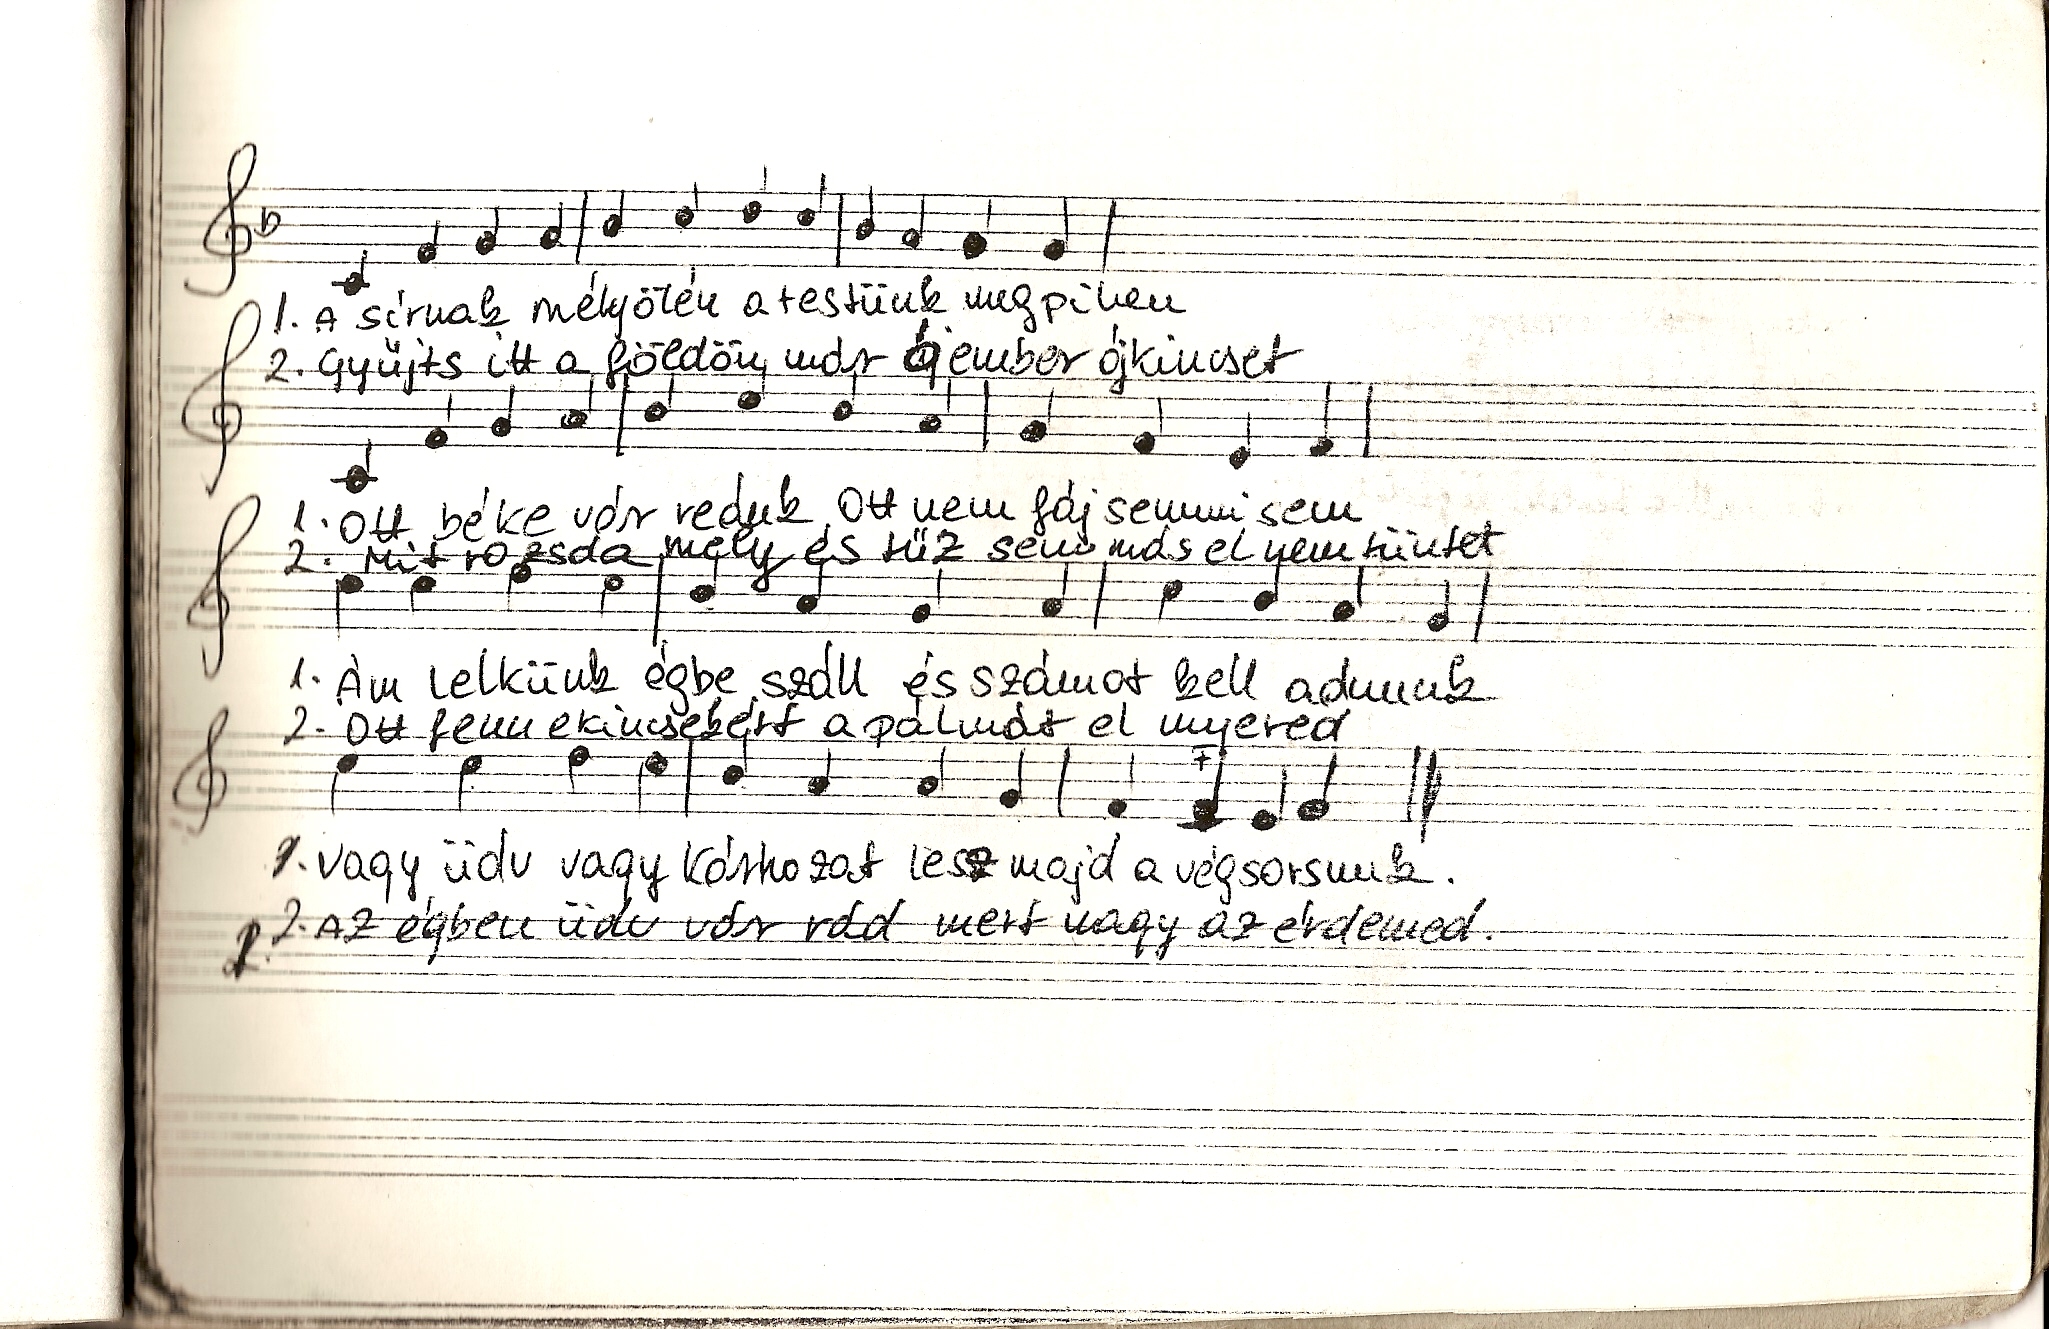 b
1. A sírnak mélyölén a testünk megpihen
2. Gyüjts itt a földön már ó ember ójkincset
1. Ott béke vár reánk Ott nem fáj semmi sem
2. Mit rozsda mely és tüz sem más el nem tüntet
1. Ám lelkünk égbe száll és számot kell adnunk
2. Ott fenn ekincsekért a pálmát el nyered
F
1. Vagy üdv vagy kárhozat lesz majd a végsorsunk.
2. Az égben üdv vár rád mert nagy az érdemed.